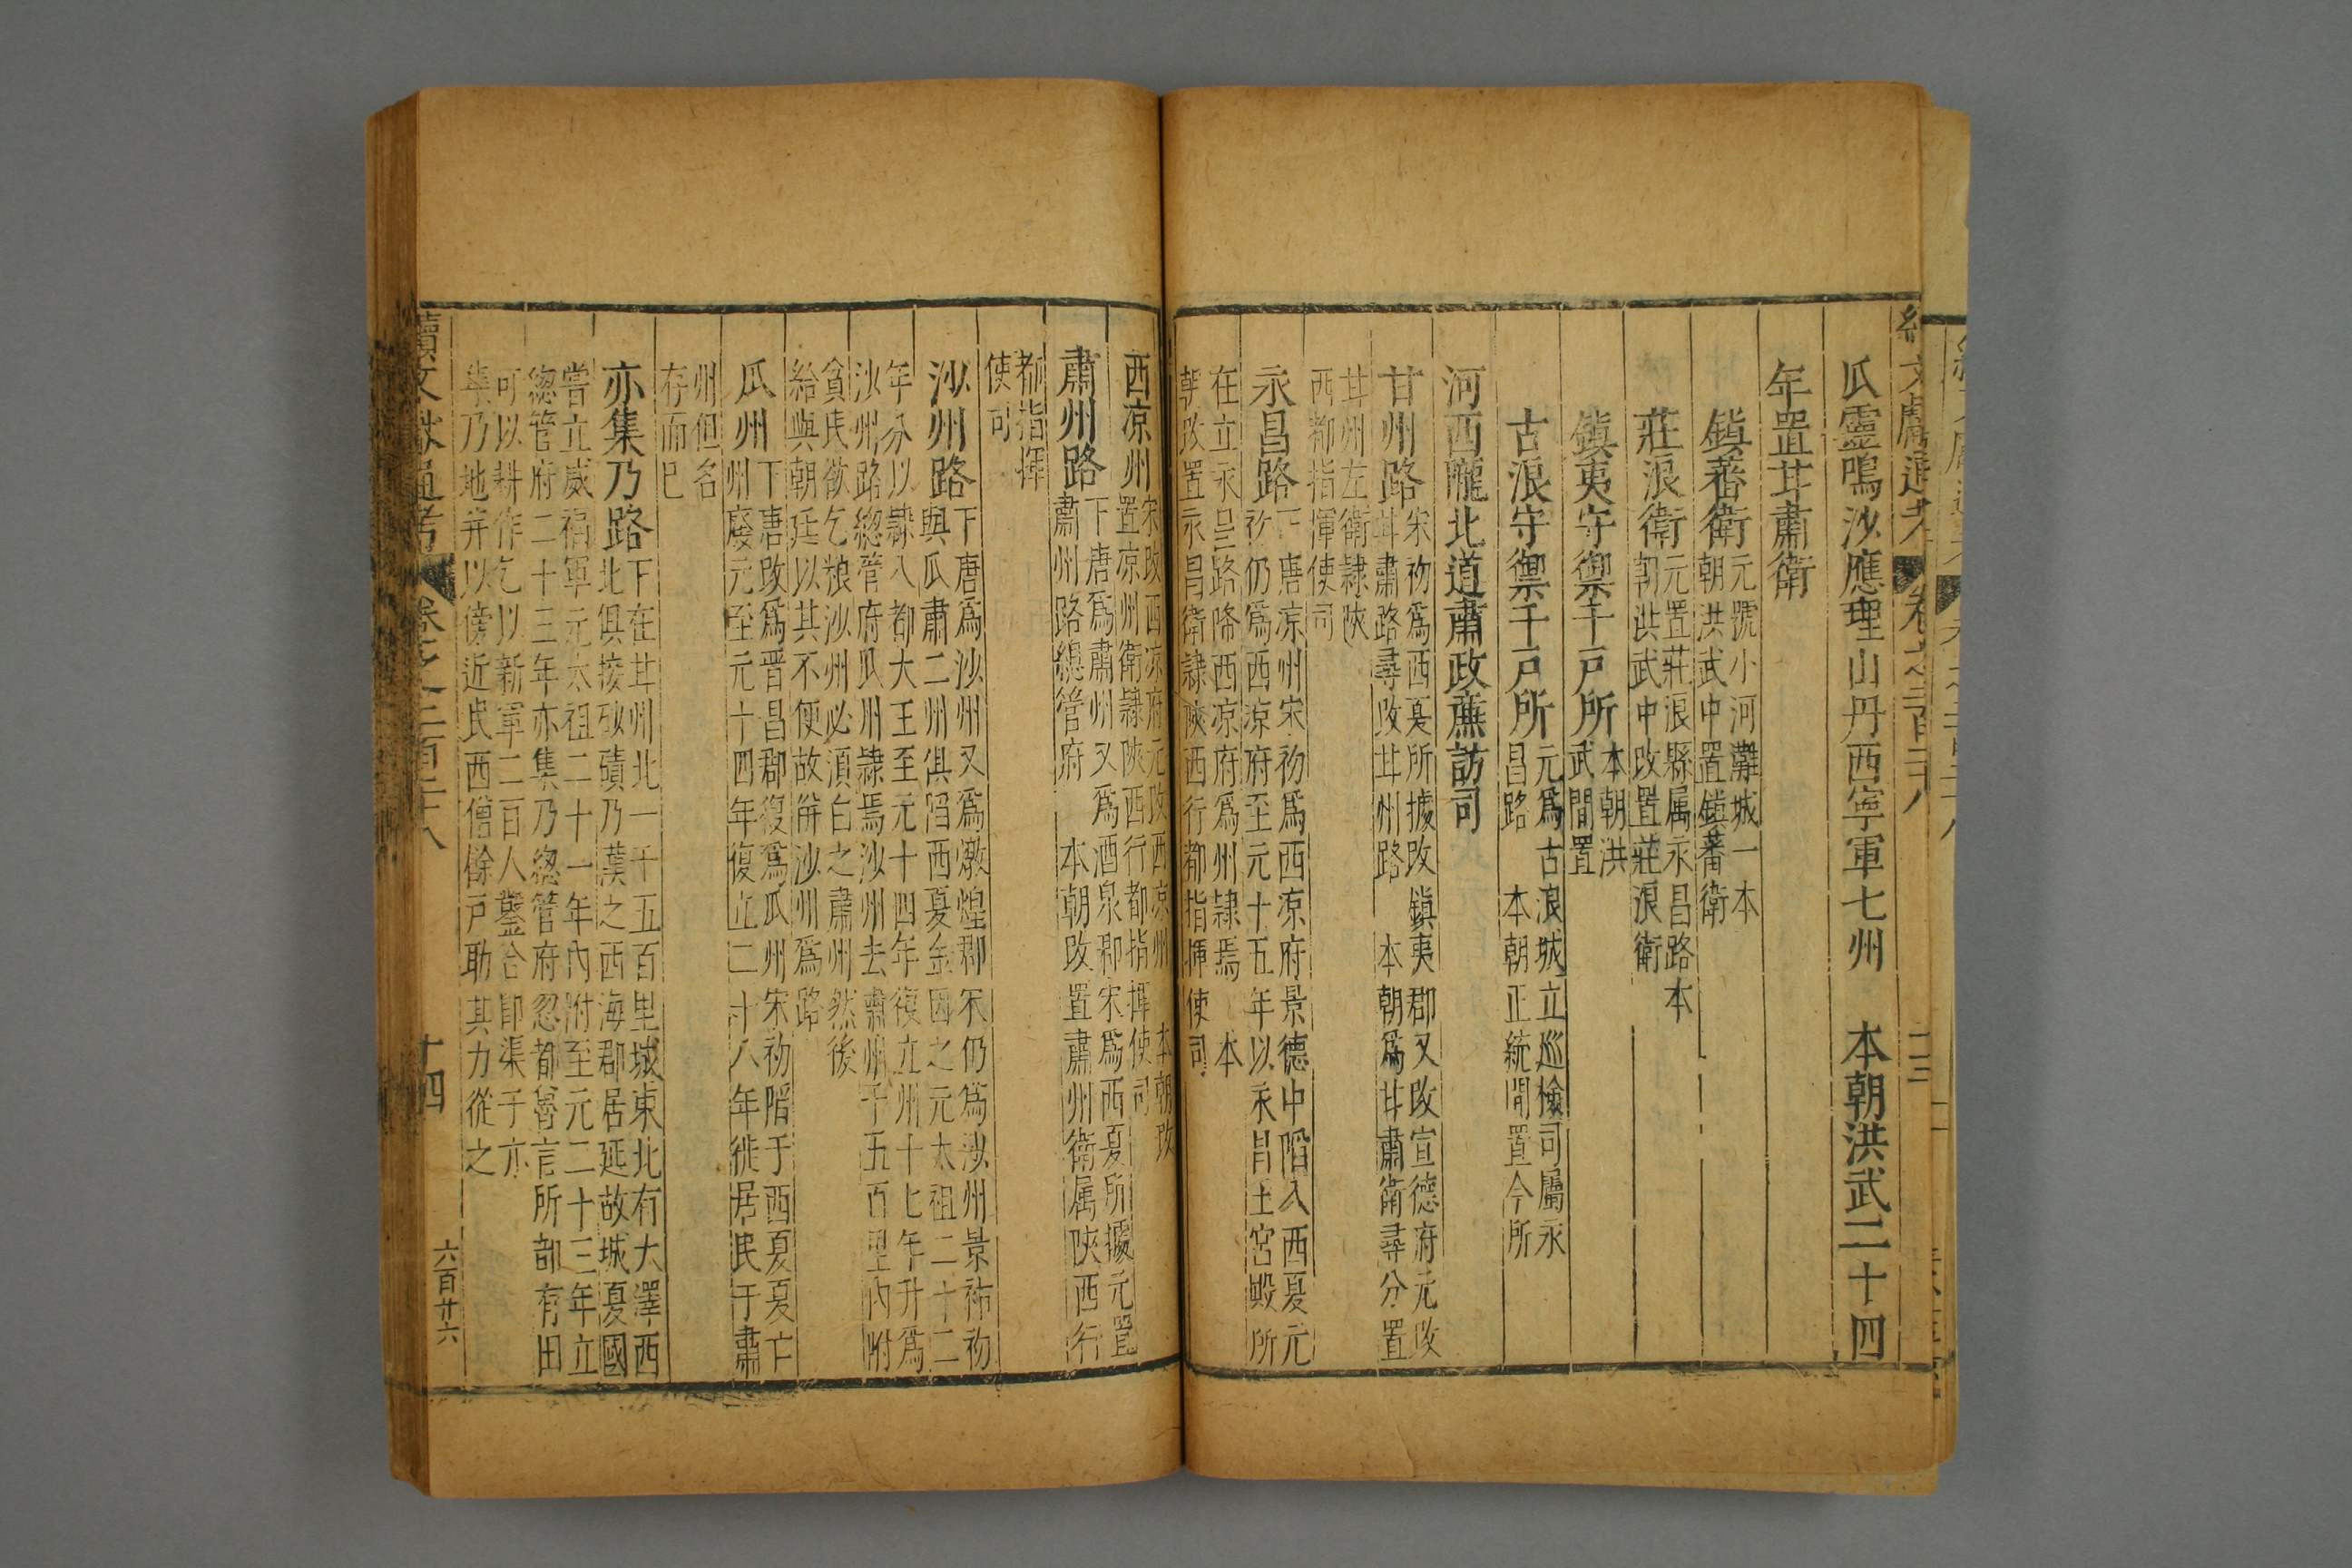 瓜靈鳴沙應理山丹西寧軍七州　本朝洪武二十四
年置甘肅衛
鎮蕃衛元號小河灘城一本
朝洪武中置鎮蕃衛
莊浪衛元置莊浪縣属永昌路本
朝洪武中改置莊浪衛
鎮夷守禦千戸所本朝洪
武間置
古浪守禦千戸所元爲古浪城立巡檢司屬永
昌路　本朝正統間置今所
河西隴北道肅政㢘訪司
甘州路宋初爲西夏所據改鎮夷郡又改宣德府元改
甘肅路尋改甘州路　本朝爲甘肅衛尋分置
甘州左衛隸陝
西都指揮使司
永昌路下唐凉州宋初爲西凉府景德中陷入西夏元
初仍爲西凉府至元十五年以永昌王宮殿所
在立永昌路降西凉府爲州隸焉　本
朝改置永昌衛隸陝西行都指揮使司
西凉州宋改西凉府元改西凉州　本朝改
置凉州衛隸陝西行都指揮使司
肅州路下唐爲肅州又爲酒泉郡宋爲西夏所據元置
肅州路總管府　本朝改置肅州衛属陝西行
都指揮
使司
沙州路下唐爲沙州又爲燉煌郡宋仍爲沙州景祐初
與瓜肅二州俱陷西夏金因之元太祖二十二
年分以隸八都大王至元十四年復立州十七年升爲
沙州路總管府瓜州隸焉沙州去肅州千五百里內附
貧民欲乞粮沙州必須白之肅州然後
給與朝廷以其不便故併沙州爲路
瓜州下唐改爲晋昌郡復爲瓜州宋初陷于西夏夏亡
州廢元至元十四年復立二十八年徙居民于肅
州但名
存而已
亦集乃路下在甘州北一千五百里城東北有大澤西
北俱接沙磧乃漢之西海郡居延故城夏國
嘗立威福軍元太祖二十一年內附至元二十三年立
總管府二十三年亦集乃總管府忽都魯言所部有田
可以耕作乞以新軍二百人鑿合即渠于亦
集乃地并以傍近民西僧餘戸助其力從之
續文獻通考　卷之二百二十八　十四
六百廿六